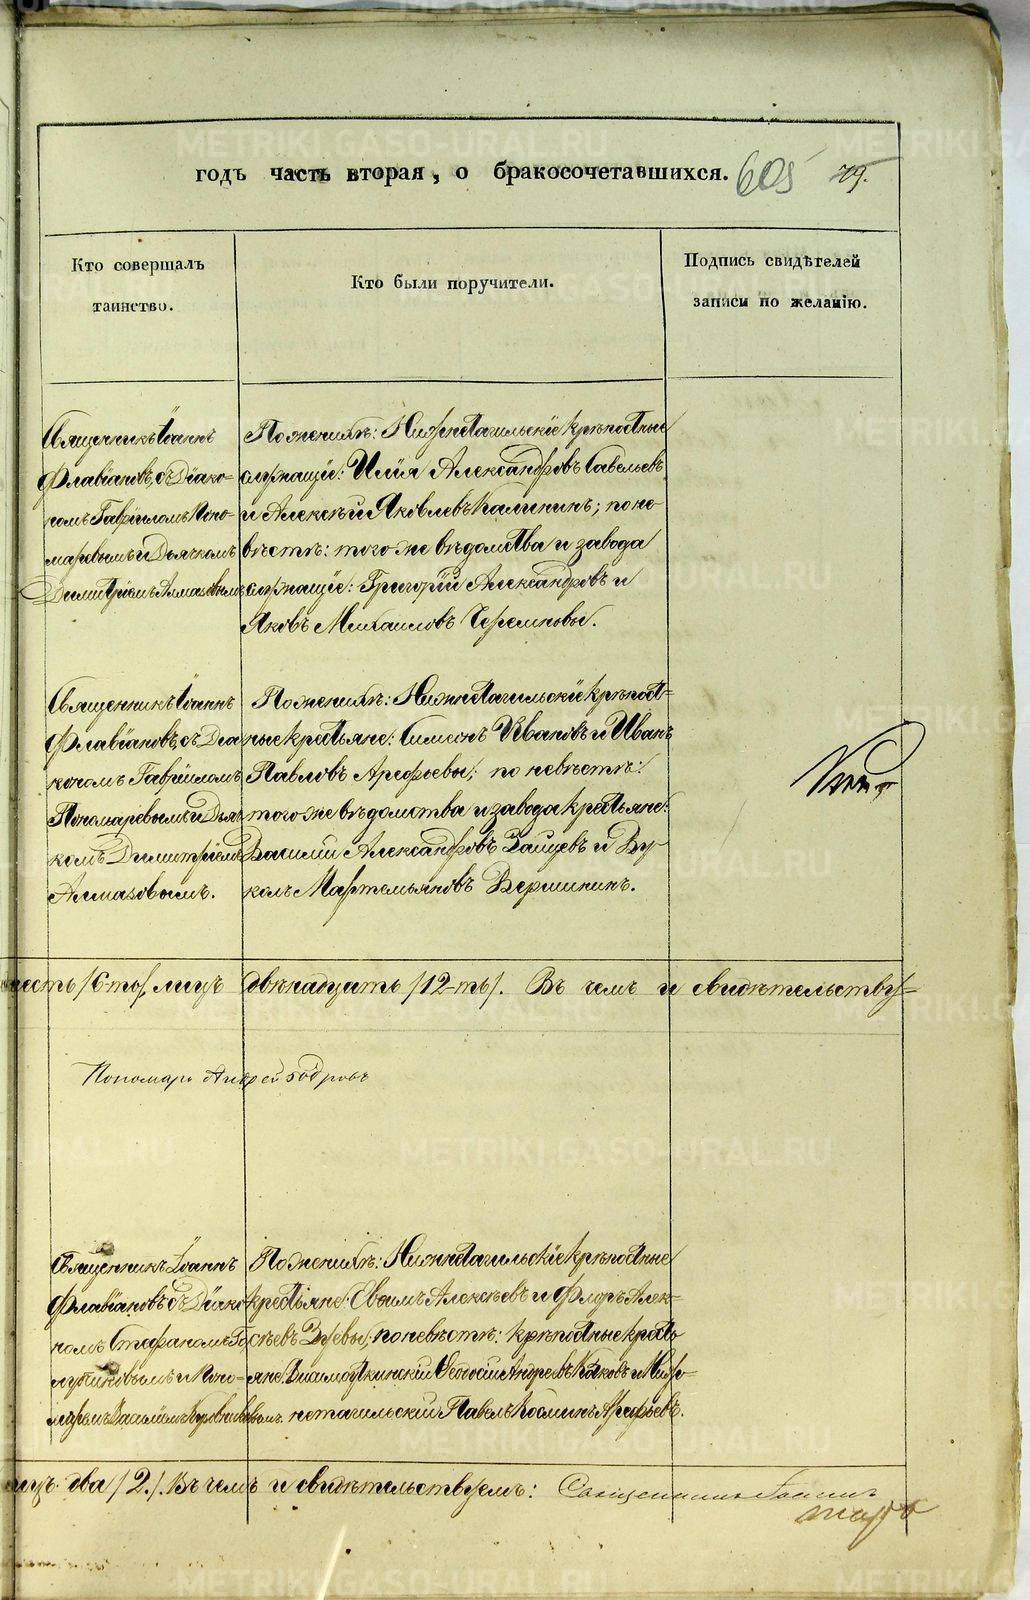 годъ часть вторая, о бракосочетавшихся. 605 709.
Кто совершалъ
таинство.
Кто были поручители.
Подпись свидѣтелей
записи по желанію.
Священникъ Іоаннъ
Флавіановъ, съ Діако-
номъ Гавріиломъ Поно-
маревымъ и Дьячкомъ
Димитріемъ Алмазовымъ
По женихѣ: Нижнетагильскіе крѣпостные
служащіе: Илія Александровъ Савельевъ
и Алексѣй Яковлевъ Калининъ; по не-
вѣстѣ: того же вѣдомства и завода
служащіе: Григорій Александровъ и
Яковъ Михаиловъ Черемновы.
Священникъ Іоаннъ
Флавіановъ, съ Діа
кономъ Гавріиломъ
Пономаревымъ и Дьяч
комъ Димитріемъ
Алмазовымъ.
По женихѣ: Нижнетагильскіе крѣпост-
ные крестьяне: Симеонъ Ивановъ и Иванъ
Павловъ Арефьевы; по невѣстѣ:
того же вѣдомства и завода крестьяне:
Василій Александровъ Зайцевъ и Ву-
колъ Мартемьяновъ Вершининъ.
шесть /6-ть/, лицъ двѣнадцать /12-ть/. Въ чемъ и свидѣтельству-
Пономарь Андрей Бодровъ
Священникъ Іоаннъ
Флавіановъ съ Діако-
номъ Стефаномъ Го-
лубчиковымъ и Поно-
маремъ
По женихѣ: Нижнетагильскіе крѣпостные
крестьяне: Евѳимъ Алексѣевъ и Флоръ Алек-
сѣевъ Зуевы; по невѣстѣ: крѣпостные кресть
яне: Висимоуткинскій Ѳеодосій Андреевъ и Ниж-
нетагильскій Павелъ Космичъ Арефьевъ.
лицъ два /2./. Въ чемъ и свидѣтельствуемъ: Священникъ Іоаннъ
METRIKI.GASO-URAL.RU